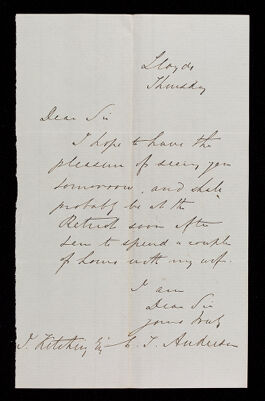 Lloyds
Thursday
Dear Sir
I hope to have the
pleasure of seeing you
tomorrow, and shall
probably be at the
Retreat soon after
ten to spend a couple
of hours with my wife.
I am
Dear Sir
yours truly
J. Kitching Esq C. J. Anderson